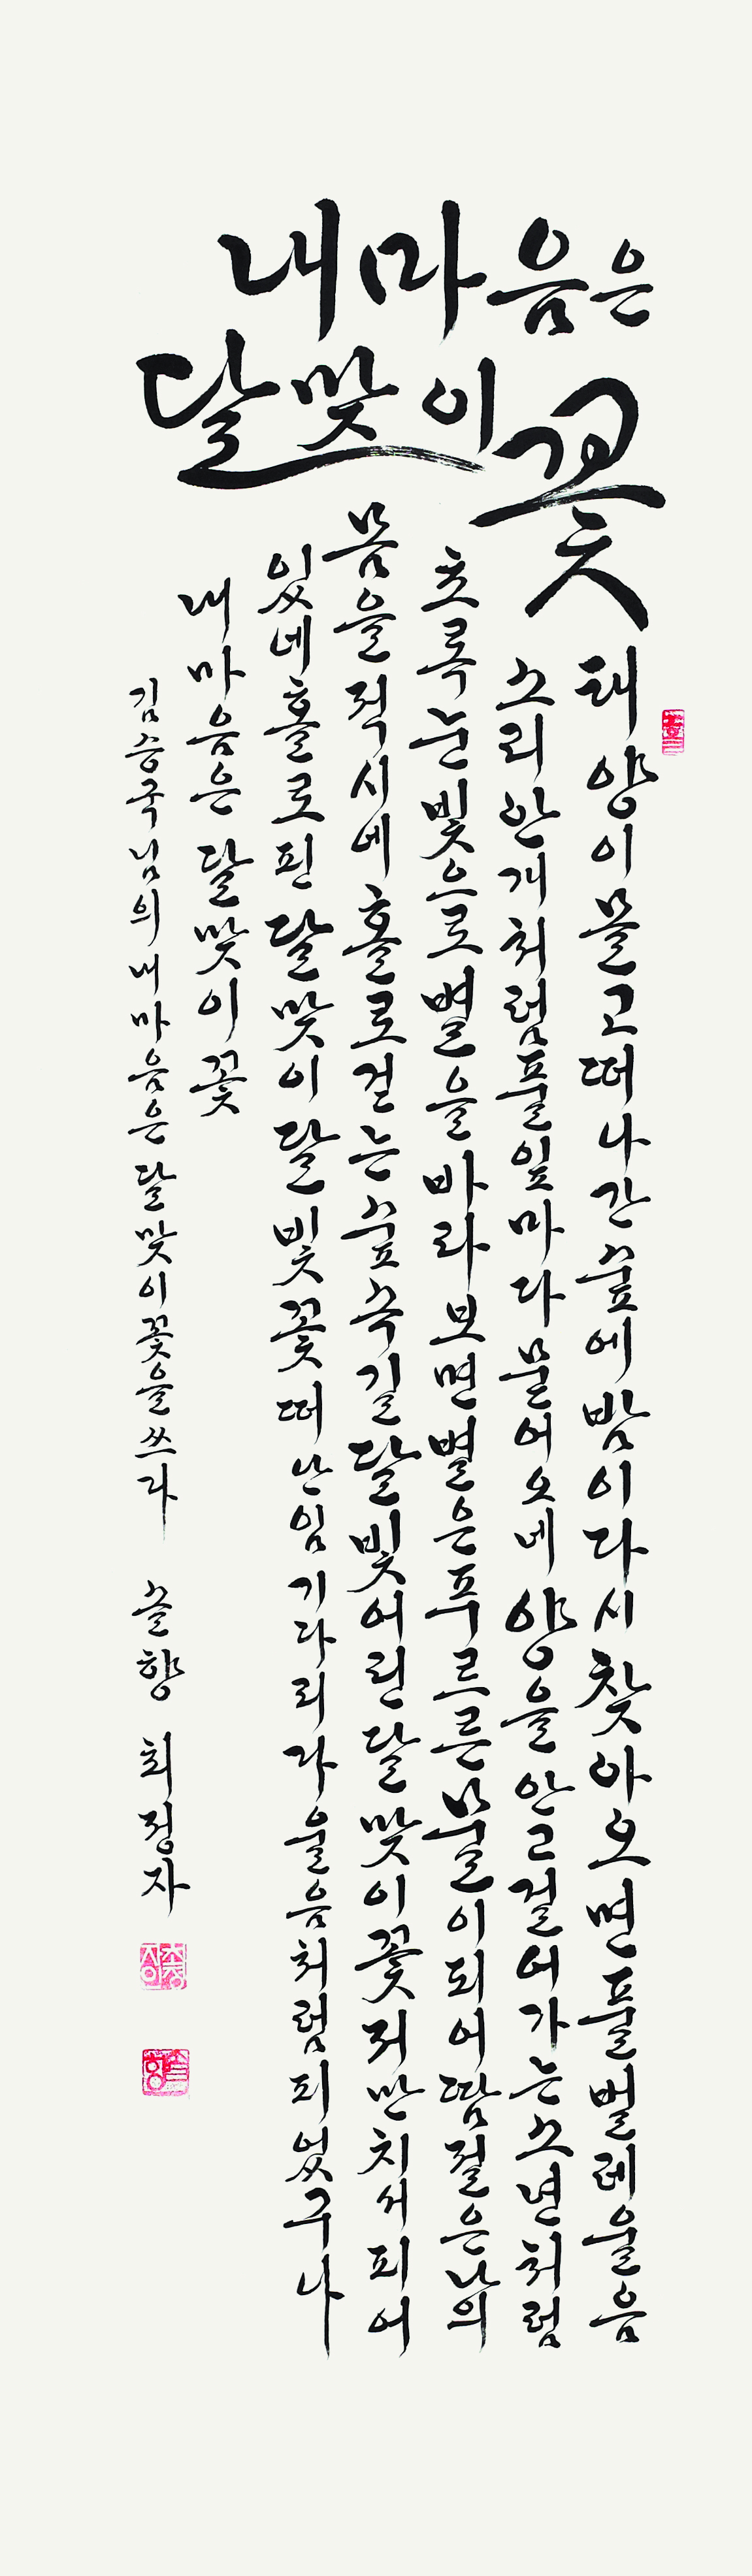 내마음은
달맞이꽃
태양이 몰고 떠나간 숲에 밤이 다시 찾아오면 풀벌레 울음
소리 안개처럼 풀잎마다 묻어오네 양을 안고 걸어가는 소년처럼
초록 눈빛으로 별을 바라보면 별은 푸르른 물이 되어 땀 절은 나의
몸을 적시네 홀로 걷는 숲속길 달빛 어린 달맞이꽃 저만치서 피어
있네 홀로 핀 달맞이 달빛꽃 떠난 임 기다리다 울음처럼 피었구나
내 마음은 달맞이꽃
김승국님의 내마음은 달맞이꽃을 쓰다 솔향 최정자